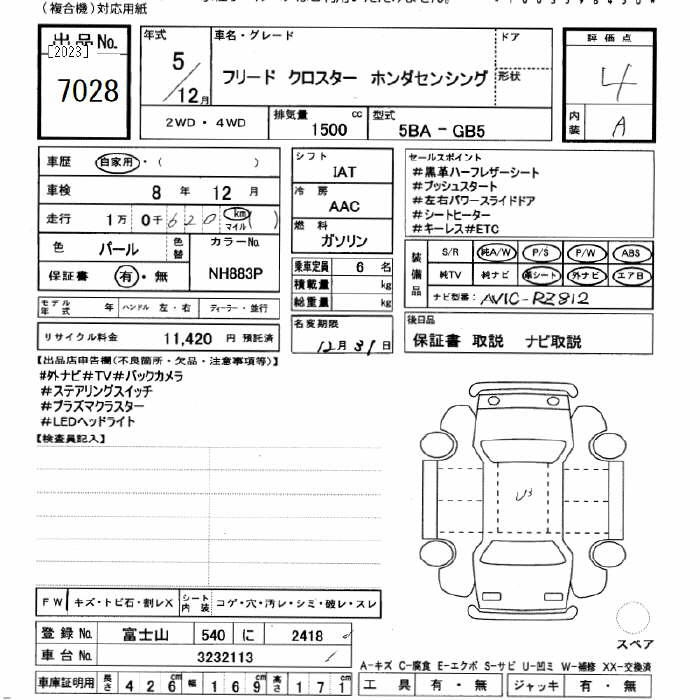 (複合機)対応用紙
出品No.
[2023]
7028
年式
5/12月
車名・グレード
フリード クロスター ホンダセンシング
ドア
形状
2WD・4WD
排気量
1500 cc
型式
5BA - GB5
評価点
4
内装
A
車歴
自家用・( )
車検
8 年 12 月
走行
1万 0千 620 km マイル ( )
色
パール
色替
カラーNo.
NH883P
保証書
有・無
モデル年式 年
ハンドル 左・右
ディーラー・並行
リサイクル料金
11,420 円 預託済
シフト
IAT
冷房
AAC
燃料
ガソリン
乗車定員 6 名
積載量 kg
総重量 kg
名変期限
12月31日
セールスポイント
#黒革ハーフレザーシート
#プッシュスタート
#左右パワースライドドア
#シートヒーター
#キーレス#ETC
装備品
S/R 純A/W P/S P/W ABS
純TV 純ナビ 革シート 外ナビ エアB
ナビ型番: AVIC-RZ812
後日品
保証書 取説 ナビ取説
【出品店申告欄(不良箇所・欠品・注意事項等)】
#外ナビ#TV#バックカメラ
#ステアリングスイッチ
#プラズマクラスター
#LEDヘッドライト
【検査員記入】
U3
FW
キズ・トビ石・割レX
シート内装
コゲ・穴・汚レ・シミ・破レ・スレ
登録No.
富士山 540 に 2418
車台No.
3232113
車庫証明用 長さ 426cm 幅 169cm 高さ 171
スペア
A-キズ C-腐食 E-エクボ S-サビ U-凹ミ W-補修 XX-交換済
工具 有・無 ジャッキ 有・無